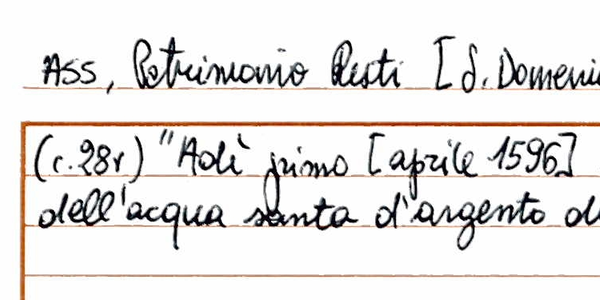 ASS, Patrimonio Resti [S. Domeni
(c.28r) "Adì primo [aprile 1596]
dell'acqua santa d'argento d